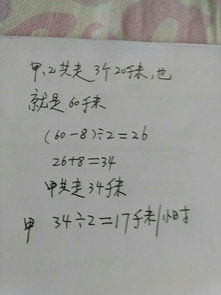 甲、乙共走3个20千米,也
就是60千米
(60-8)÷2=26
26+8=34
甲共走34千米
甲 34÷2=17千米/小时